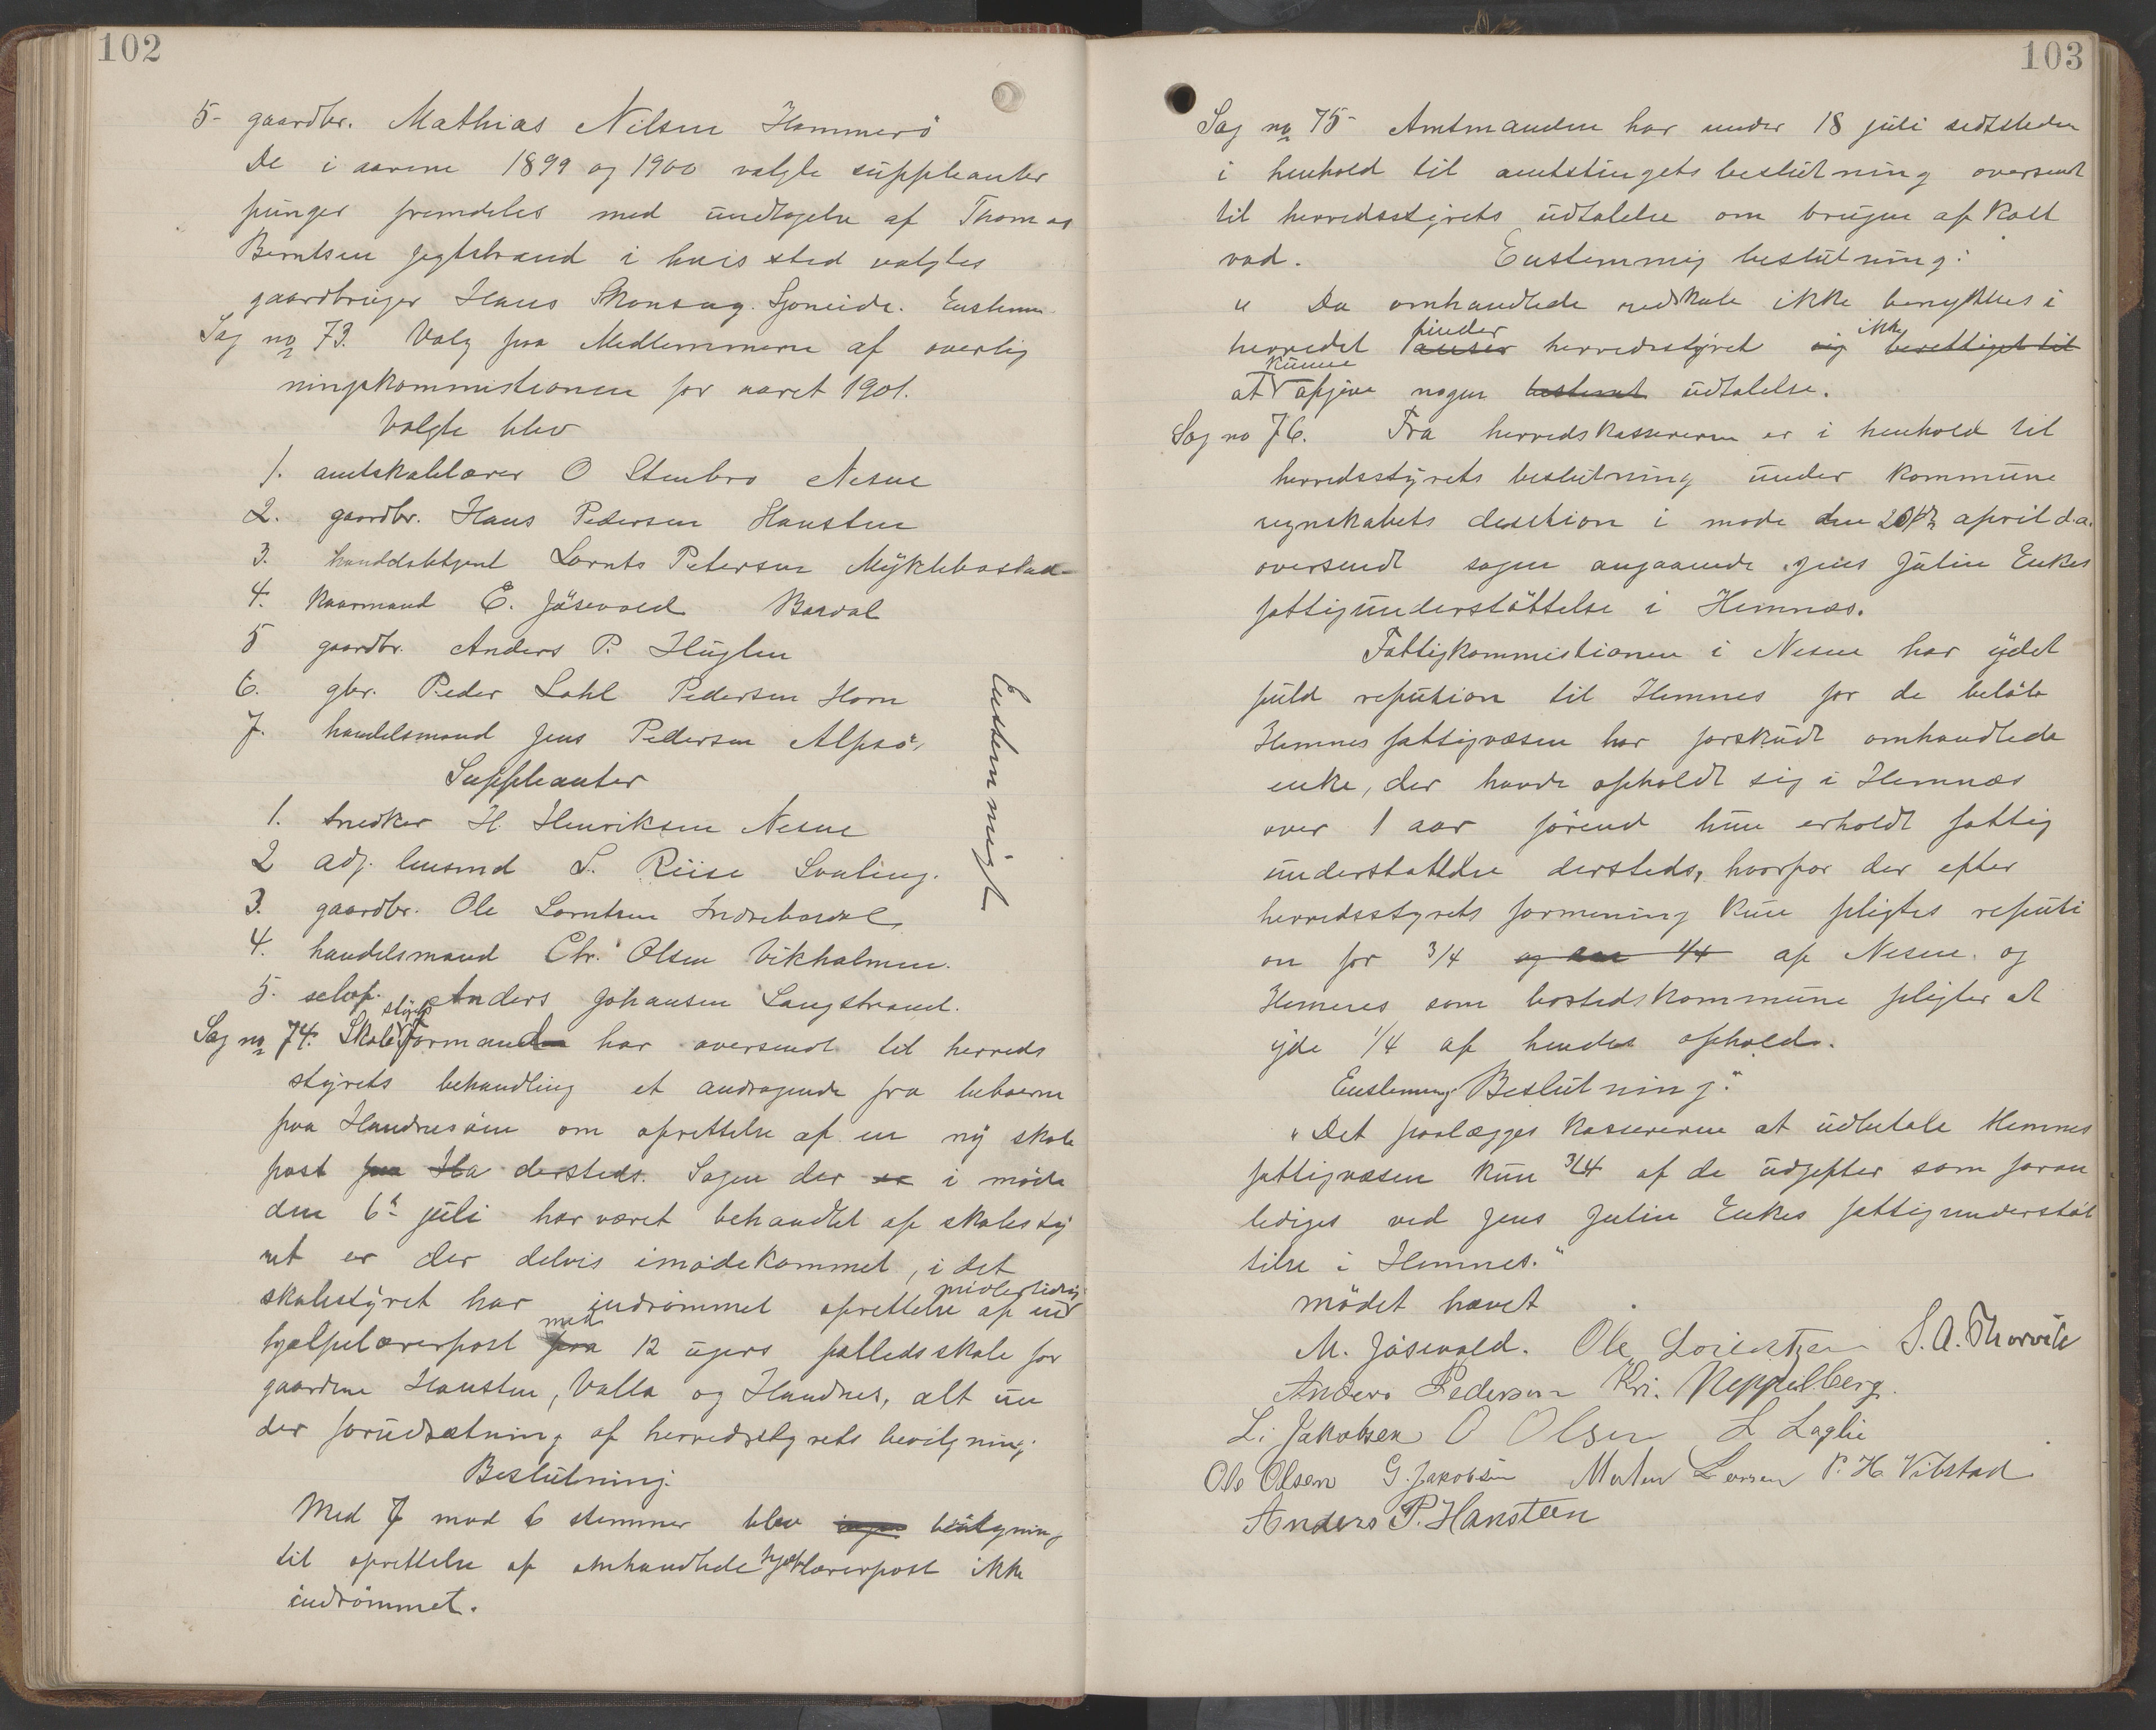 102
5- gaardbr. Mathias Nilsen Hammerö
De i aarene 1899 og 1900 valgte suppleanter
funger fremdeles med undtagelse af Thomas
Berntsen Jegtstrand i hvis sted valgtes
gaardbruger Hans Skonseng. Sjoneide. Enstem.
Sag no 73. Valg paa Medlemmerne af overlig
ningskommistionen for aaret 1901.
Valgte blev
1. amtskolelærer O Stenbro Nesne
2. gaardbr. Hans Pedersen Hansten
3. Lornts Petersen Myklebostad
4. Kaarmand E. Jösevold Bardal
5 gaardbr. Anders P. Huglen
6. gbr. Peder Dahl Pedersen Horn
7. handelsmand Jens Pedersen Alfsö,
Enstemmigt
Suppleanter
1. Snedker H. Henriksen Nesne
2 adj. lensmd S. Riise Svaling.
3. gaardbr. Ole Lorntsen Indrebardal
4. handelsmand Chr. Olsen Vikholmen.
5. selvf. Anders Johansen Langstrand.
Sag no 74. Skolestyrets Formand har oversendt til herreds
styrets behandling et andragende fra beboerne
paa Handnesöen om oprettelse af en ny skole
post paa Ha dersteds. Sagen der er i möde
den 6te juli har været behandlet af skolesty
ret er der delvis imödekommet, i det
skolestyret har indrömmet oprettelse af en midlertidig
hjælpelærerpost paa med 12 ugers fælledsskole for
gaardene Hansten, Valla og Handnes, alt un
der forudsætning af herredsstyrets bevilgning.
Beslutning:
Med 7 mod 6 stemmer blev ingen bevilgning
til oprettelse af omhandlede hjælpelærerpost ikke
indrömmet.
103
Sag no 75- Amtmanden har under 18 juli sidstleden
i henhold til amtstingets beslutning oversendt
til herredsstyrets udtalelse om brugen af Kall
vad. Enstemmig beslutning:
" Da omhandlede redskab ikke benyttes i
herredet anser finder herredsstyret sig ikke berettiget til
at kunne afgive nogen bestemt udtalelse.
Sag no 76. Fra herredskassereren er i henhold til
herredsstyrets beslutning under kommune
regnskabets desition i möde den 20de april d.a.
oversendt sagen angaaende Jens Julin Enkes
fattigunderstöttelse i Hemnæs.
Fattigkommistionen i Nesne har ydet
fuld refution til Hemnes for de belöb
Hemnes fattigvæsen har forskudt omhandlede
enke, der havde opholdt sig i Hemnæs
over 1 aar förend hun erholdt fattig
understøttelse dersteds, hvorfor der efter
herredsstyrets formening kun pligtes refuti
on for 3/4 og kun 1/4 af Nesne og
Hemnes som bostedskommune pligter at
yde 1/4 af hendes ophold.
Enstemmig Beslutning:"
"Det paalægges kassereren at udbetale Hemnes
fattigvæsen kun 3/4 af de udgifter som foran
lediges ved Jens Julin Enkes fattigunderstöt
telse i Hemnes."
mödet hævet
M. Jösevold. Ole Lorentzen S. A. Thorvik
Anders Pedersen Kri. Neppelberg.
L. Jakobsen O Olsen L Laglie
Ole Olsen G. Jakobsen Morten Larsen P. H. Vibstad
Anders P. Hansteen